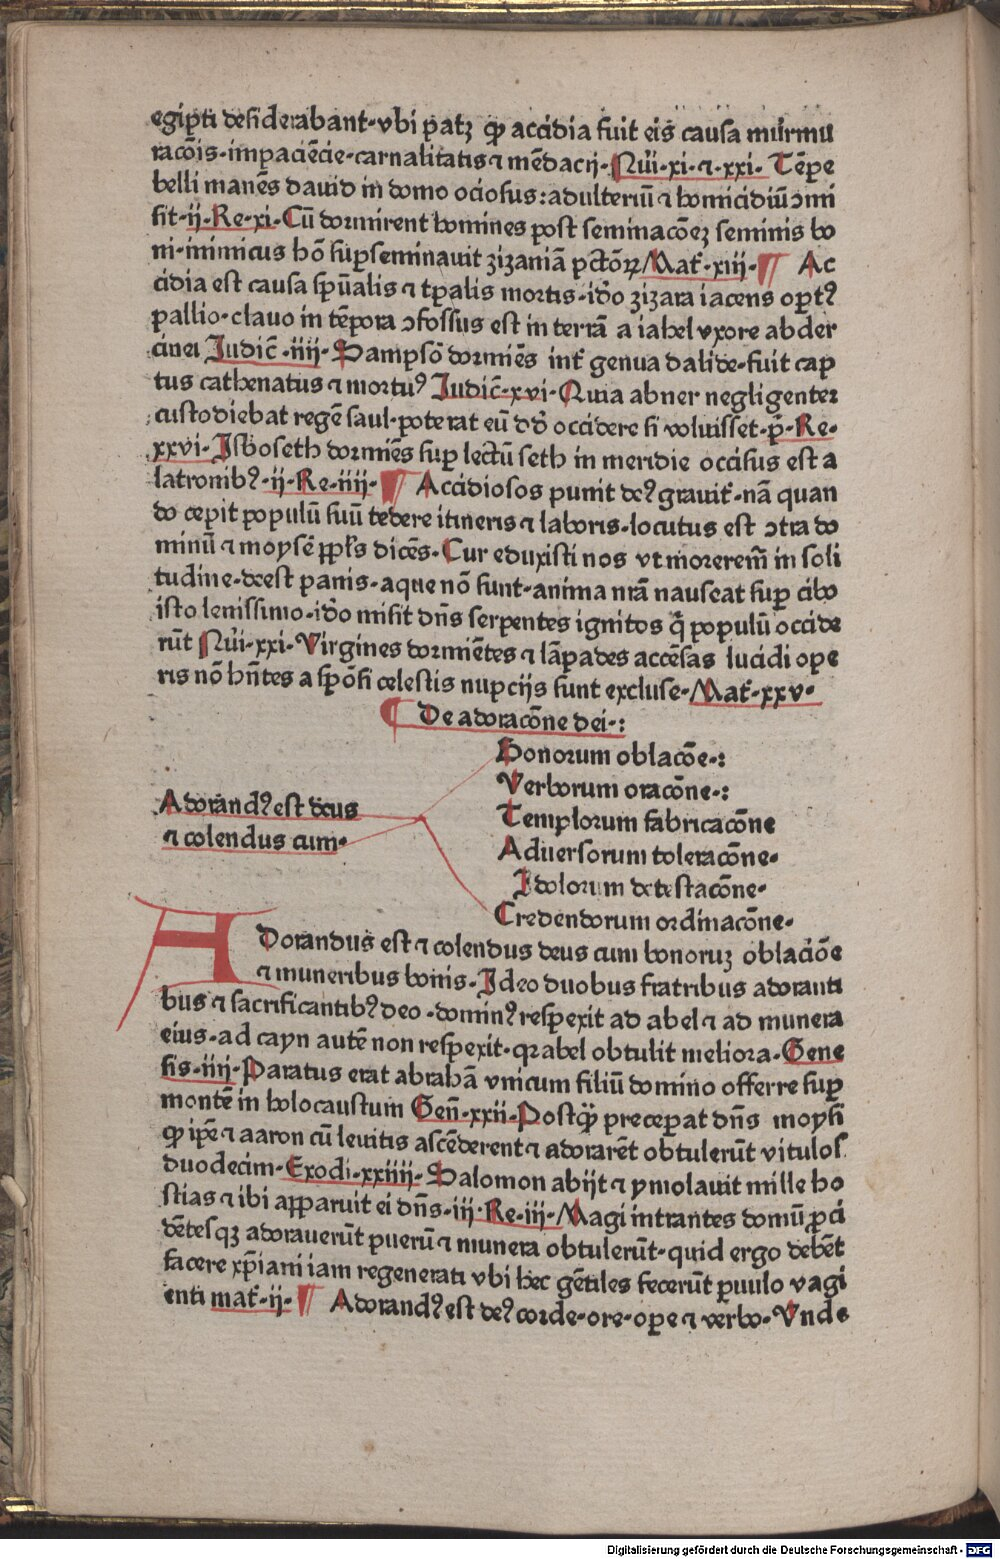 egipti desiderabant·vbi patꝫ ꝙ accidia fuit eis causa murmu
racōis·impaciēcie·carnalitatis ⁊ mēdacij·Nūi·xi·⁊·xxi· Tēpe
belli manēs dauid in domo ociosus:adulteriū ⁊ homicidiū ɔmi
sit·ij·Re·xi·Cū dormirent homines post seminacōeꝫ seminis bo
ni·inimicus hō suꝑseminauit zizaniā pctōꝝ/Mat̄·xiij·¶ Ac
cidia est causa spūalis ⁊ tꝑalis mortis·idō zizara iacens opertꝰ
pallio·clauo in tēpora ɔfossus est in terrā a iahel vxore abder
cinei Iudic̄·iiij·Sampsō dormiēs int̄ genua dalide·fuit cap
tus cathenatus ⁊ mortuꝰ Iudic̄·xvi·Quia abner negligenter
custodiebat regē saul·poterat eū dd̄ occidere si voluisset·p̄·Re·
xxvi·Isboseth dormiēs suꝑ lectū seth in meridie occisus est a
latronibꝰ·ij·Re·iiij·¶ Accidiosos punit deꝰ grauit̄·nā quan
do cepit populū suū tedere itineris ⁊ laboris·locutus est ɔtra do
minū ⁊ moysē ppl̄s dicēs·Cur eduxisti nos vt morerem̄ in soli
tudine·deest panis·aque nō sunt·anima nrā nauseat suꝑ cibo
isto leuissimo·idō misit dn̄s serpentes ignitos q̄ populū occide
rūt Nūi·xxi·Virgines dormiētes ⁊ lāpades accēsas lucidi ope
ris nō hn̄tes a spōsi celestis nupcijs sunt excluse·Mat̄·xxv·
¶ De adoracōne dei·:
Honorum oblacōe·:
Verborum oracōne·:
Adorandꝰ est deus
Templorum fabricacōne
⁊ colendus cum·
Aduersorum toleracōne·
Idolorum detestacōne·
Credendorum ordinacōne·
Adorandus est ⁊ colendus deus cum honoruꝫ oblaciōe
⁊ muneribus bonis·Ideo duobus fratribus adoranti
bus ⁊ sacrificantibꝰ deo·dominꝰ respexit ad abel ⁊ ad munera
eius·ad cayn autē non respexit·qꝛ abel obtulit meliora·Gene
sis·iiij·Paratus erat abrahā vnicum filiū domino offerre suꝑ
montē in holocaustum Gen̄·xxii·Postq̄ preceperat dn̄s moysi
ꝙ ipē ⁊ aaron cū leuitis ascēderent ⁊ adorarēt obtulerūt vitulos
duodecim·Exodi·xxiiij·Salomon abijt ⁊ ymolauit mille ho
stias ⁊ ibi apparuit ei dn̄s·iij·Re·iij·Magi intrantes domū ꝓci
dētesqꝫ adorauerūt puerū ⁊ munera obtulerūt·quid ergo debēt
facere xp̄iani iam regenerati vbi hec gētiles fecerūt paruulo vagi
enti mat̄·ij·¶ Adorandꝰ est deꝰ corde·ore·ope ⁊ verbo·Vnde
Digitalisierung gefördert durch die Deutsche Forschungsgemeinschaft - DFG